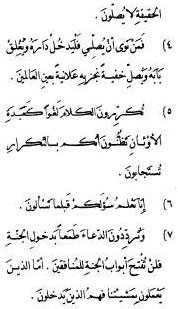 الحقيقة لا يصلون .
(٤) فمن نوى أن يصلي فليدخل داره ويغلق
بابه ويصلّ خفية نجزيه علانية بعين العالمين .
(٥) تكررون الكلام لغوا كعبدة
الأوثان تظنون أنكم بالتكرار
تستجابون .
(٦) إنّا نعلم سؤلكم قبلما تسألون .
(٧) وترددون الدعاء طمعا بدخول الجنة
فلن تفتح أبواب الجنة للمنافقين . أما الذين
يعملون بمشيئتنا فهم الذين يدخلون .